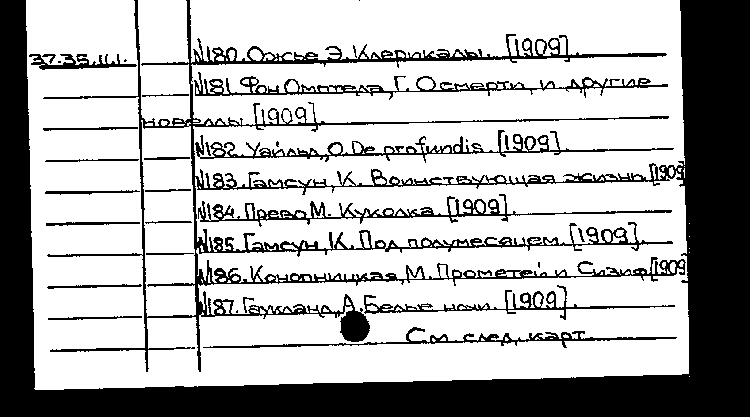 37.35.11.1. №180. Ожье, Э. Клерикалы. [1909].
№181. Фон Омптеда, Г. О смерти, и другие
новеллы. [1909].
№182. Уайльд, О. De profundis. [1909].
№183. Гамсун, К. Воинствующая жизнь. [1909
№184. Прево, М. Куколка. [1909].
№185. Гамсун, К. Под полумесяцем. [1909].
№186. Конопницкая, М. Прометей и Сизиф [1909
№187. Гаукланд, А. Белые ночи. [1909].
См. след. карт.